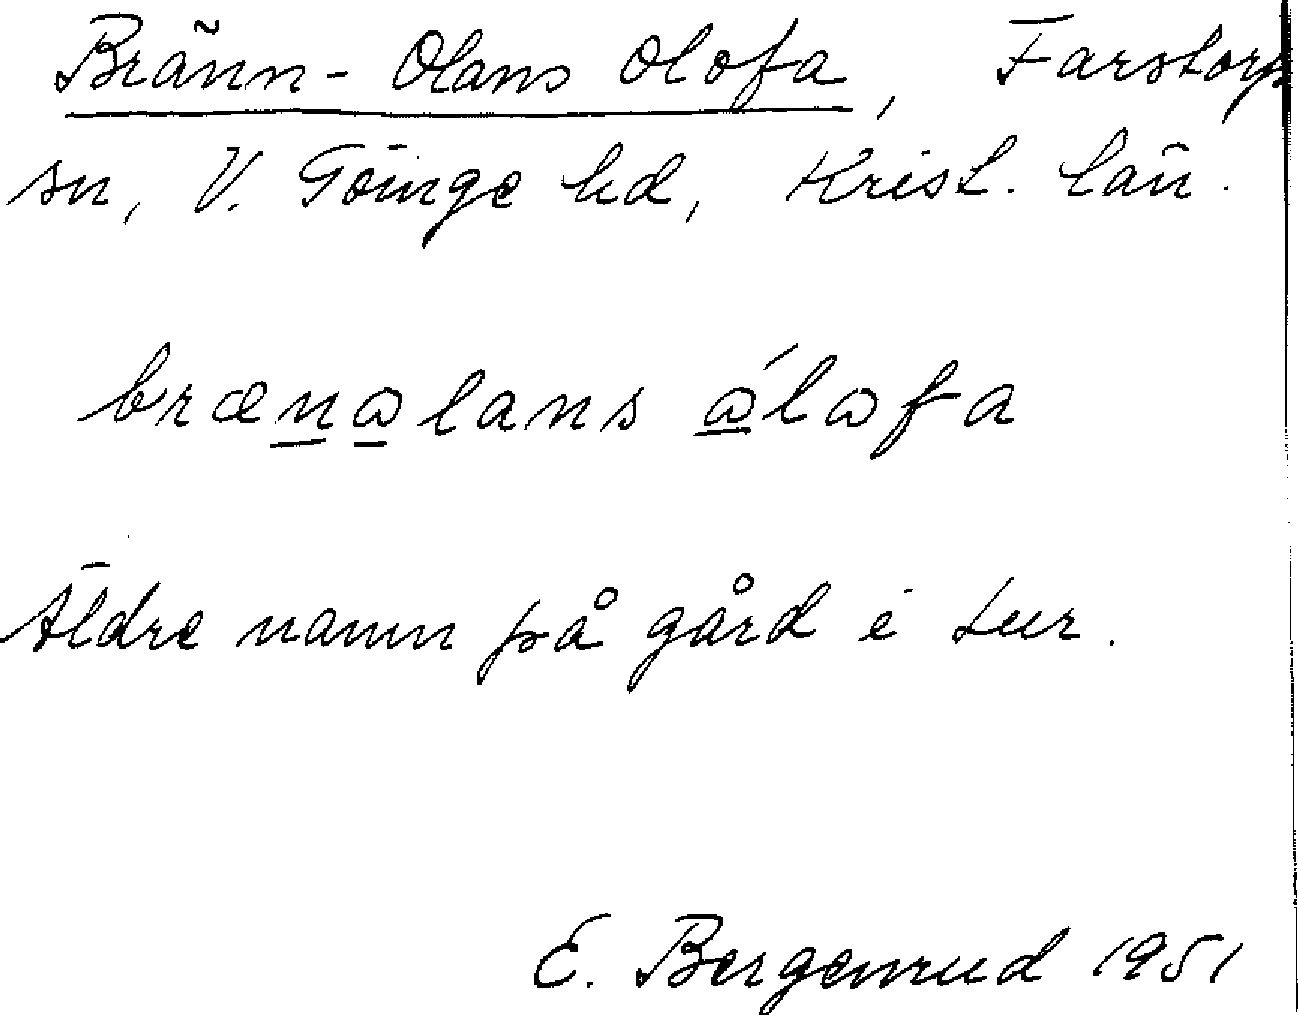 Bränn-Olans Olofa, Farstorp
sn, V. Göinge hd, Krist. län.
brænɷlans ɷ́lɷfa
Äldre namn på gård i Lur.
E. Bergenrud 1951